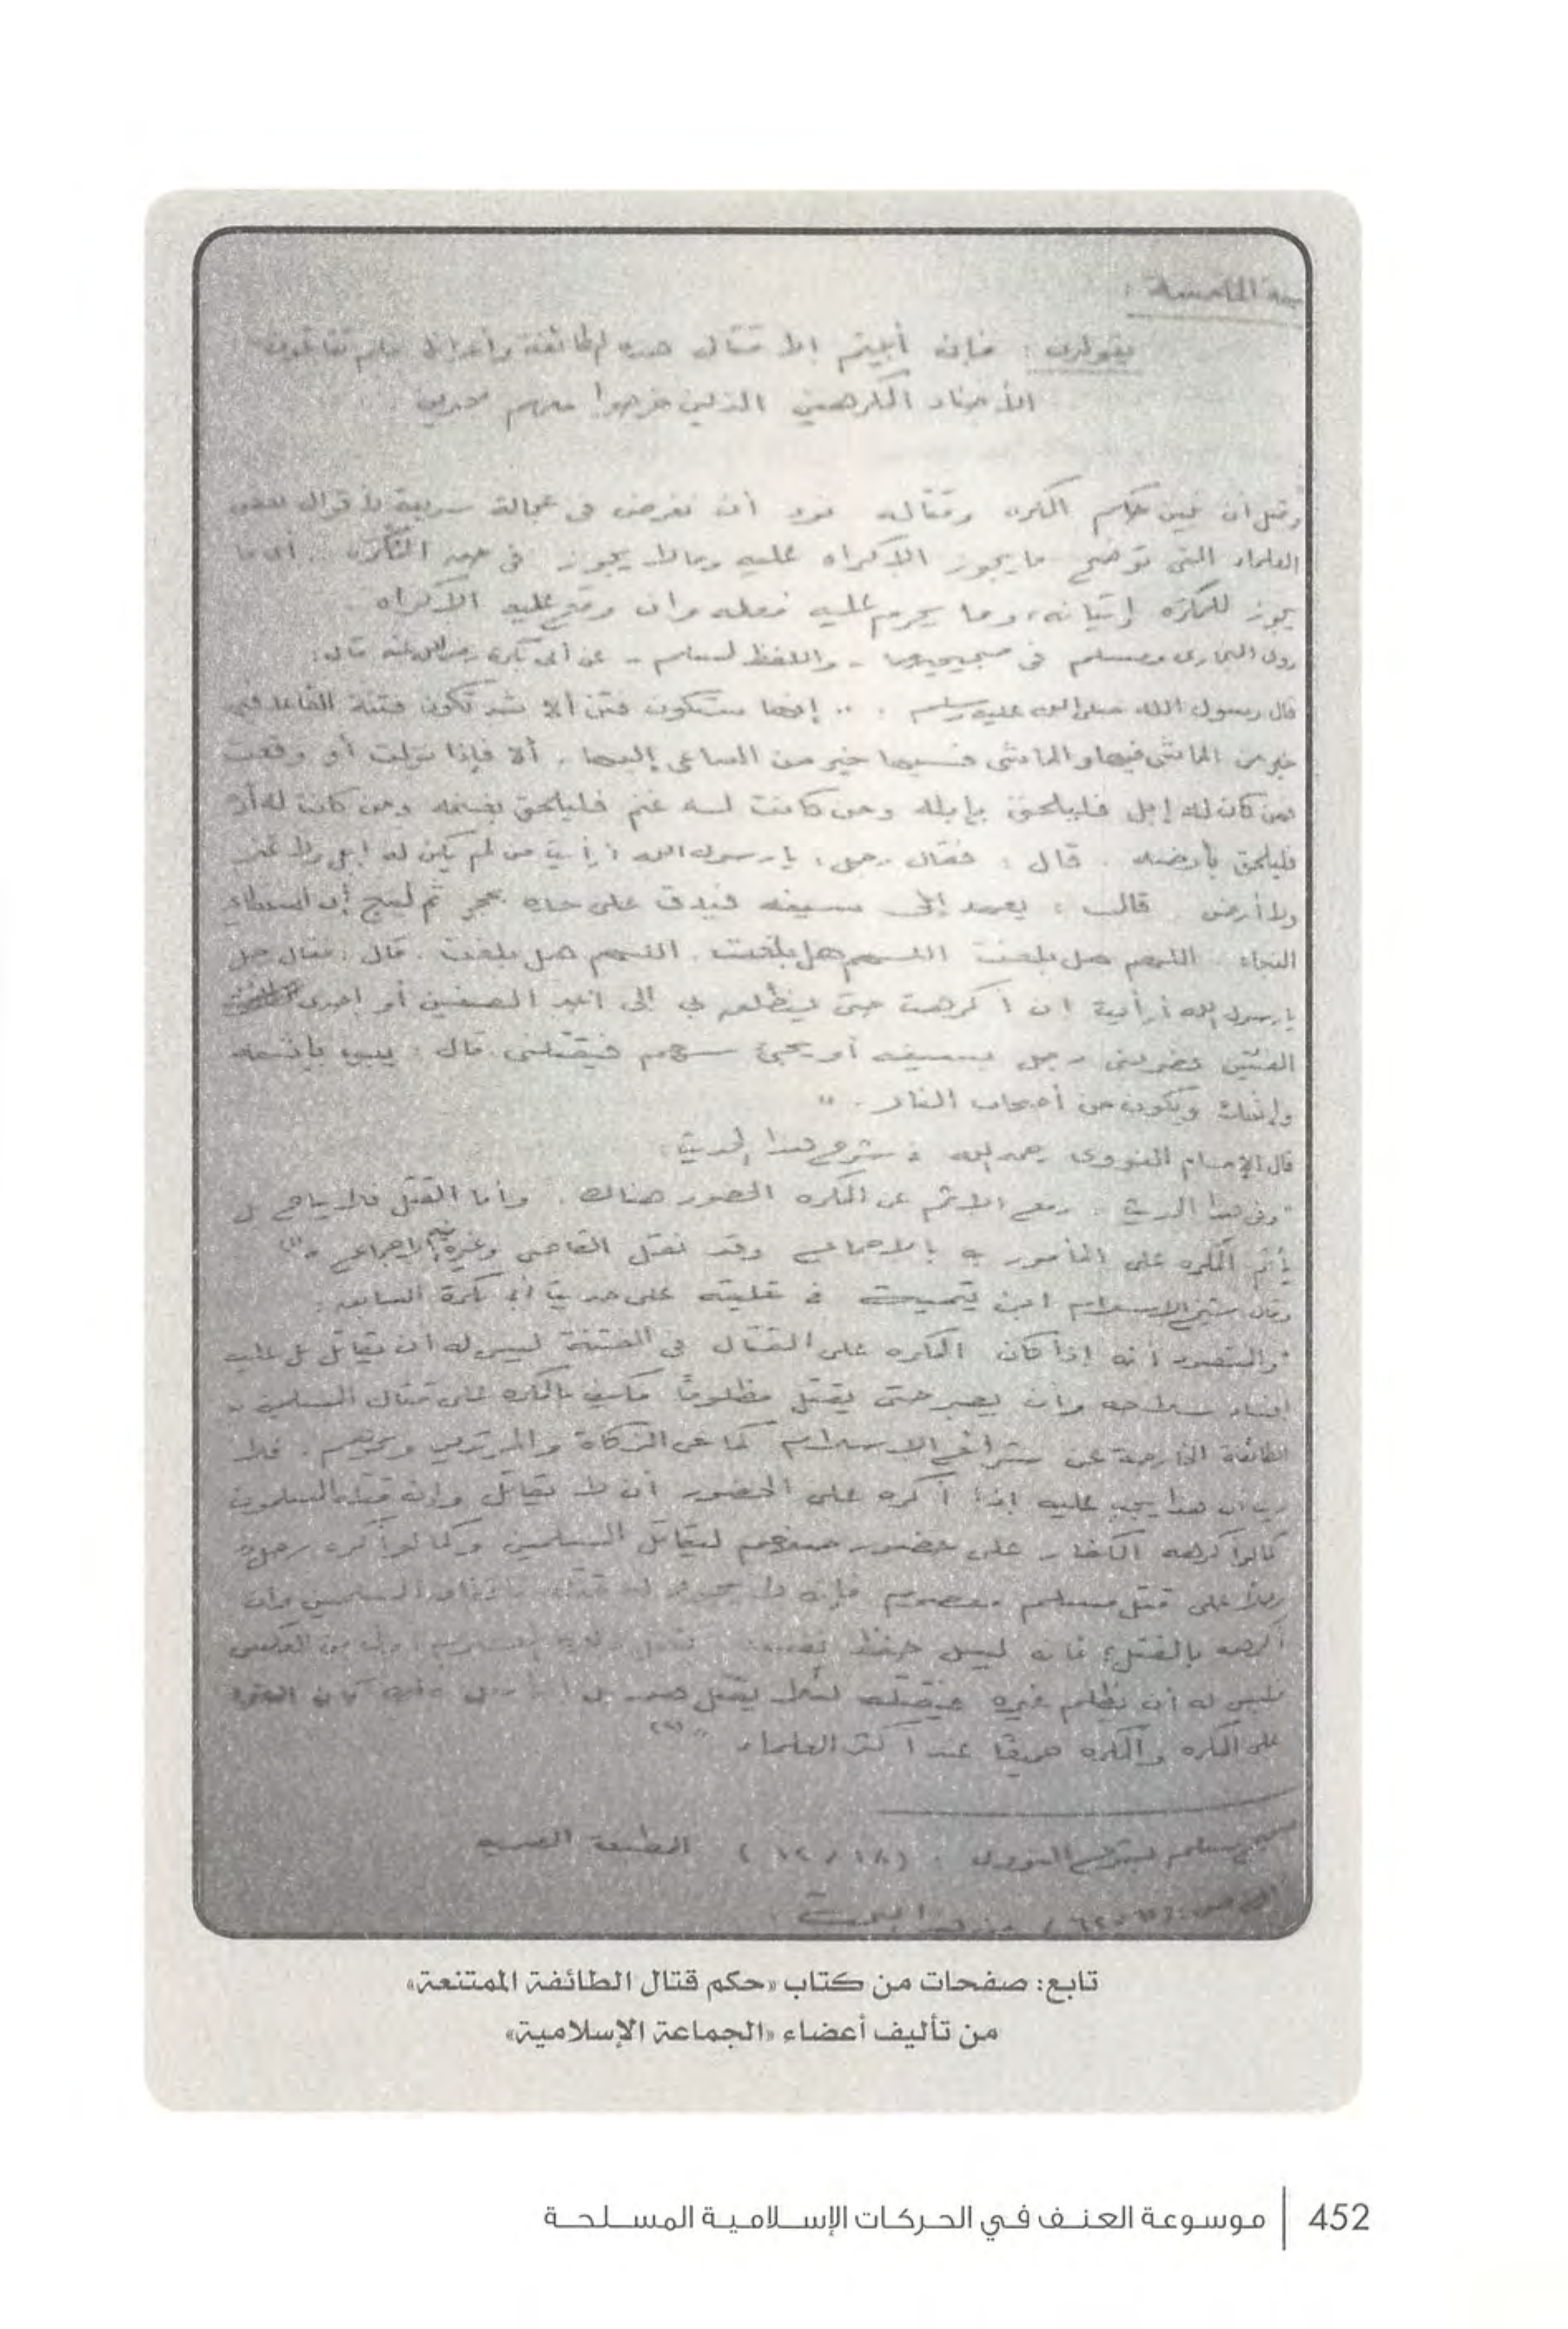 الخامسة :
يقولون : فإن أبيتم إلا قتال هذه الطائفة وأعوانها فلم تقاتلون
الأجناد المكرهين الذين خرجوا معهم مكرهين
وقبل أن نبين حكم المكره وقتاله نود أن نعرض في عجالة سريعة لأقوال بعض
العلماء التي توضح ما يجوز الإكراه عليه وما لا يجوز في حق المكره .. أي ما
يجوز للمكره إتيانه، وما يحرم عليه فعله وان وقع عليه الاكراه .
روى البخارى ومسلم في صحيحيهما - واللفظ لمسلم - عن أبي بكرة رضى الله عنه قال :
قال رسول الله صلى الله عليه وسلم : " إنها ستكون فتن ألا ثم تكون فتنة القاعد فيها
خير من الماشى فيها والماشى فيها خير من الساعى إليها . ألا فإذا نزلت أو وقعت
فمن كان له إبل فليلحق بإبله ومن كانت له غنم فليلحق بغنمه ومن كانت له أر
فليلحق بأرضه . قال : فقال رجل : يا رسول الله أرأيت من لم يكن له إبل ولا غنم
ولا أرض . قال : يعمد إلى سيفه فيدق على حده بحجر ثم لينج إن استطاع
النجاء . اللهم هل بلغت اللهم هل بلغت . اللهم هل بلغت . قال : فقال رجل
يا رسول الله أرأيت ان أكرهت حتى ينطلق بي إلى أحد الصفين أو إحدى
الفئتين فضربنى رجل بسيفه أو يجئ سهم فيقتلنى . قال : يبوء بإثمه
وإثمك ويكون من أصحاب النار . "
قال الإمام النووى رحمه الله في شرح هذا الحديث :
" وفي هذا الحديث : رفع الاثم عن المكره الحضور هناك . وأما القتل فلا يباح بل
يأثم المكره على المأمور به بالاجماع وقد نقل القاضى وغيره فيه الاجماع " (١)
وقال شيخ الاسلام ابن تيمية في تعليقه على حديث أبي بكرة السابق :
" والمقصود أنه إذا كان المكره على القتال في الفتنة ليس له أن يقاتل بل عليه
افساد سلاحه وأن يصبر حتى يقتل مظلوما فكيف بالمكره على قتال المسلمين مع
الطائفة الخارجة عن شرائع الاسلام كمانعى الزكاة والمرتدين ونحوهم . فلا
ريب ان هذا يجب عليه إذا أكره على الحضور أن لا يقاتل وإن قتله المسلمون
كما لو أكرهه الكفار على حضور صفهم ليقاتل المسلمين وكما لو أكره رجل
رجلا على قتل مسلم معصوم فإنه لا يجوز له قتله باتفاق المسلمين وان
أكرهه بالقتل؛ فانه ليس حفظ نفسه
فليس له أن يظلم غيره فيقتله لئلا يقتل هو بل
على المكره والمكره جميعا عند أكثر العلماء " (٢)
صحيح مسلم بشرح النووى . (١٢/١٨) المطبعة المصرية
تابع: صفحات من كتاب «حكم قتال الطائفة الممتنعة»
من تأليف أعضاء «الجماعة الإسلامية»
452 | موسوعة العنف في الحركات الإسلامية المسلحة